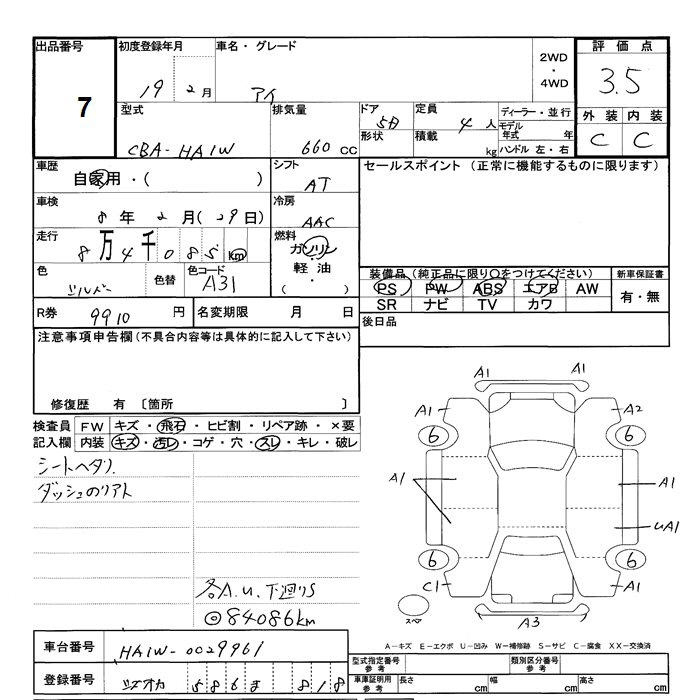 出品番号
7
初度登録年月
19 2月
車名・グレード
アイ
2WD
・
4WD
評価点
3.5
外装 内装
C C
型式
CBA-HA1W
排気量
660 cc
ドア 5D
形状
定員 4 人
積載 kg
ディーラー・並行
モデル年式 年
ハンドル 左・右
車歴
自家用・( )
シフト
AT
セールスポイント (正常に機能するものに限ります)
車検
8年 2月(29日)
冷房
AAC
走行
8万4千085km
燃料
ガソリン
・
軽油
( )
色
シルバー
色替
色コード
A31
装備品 (純正品に限り○をつけてください)
PS PW ABS エアB AW
SR ナビ TV カワ
新車保証書
有・無
R券 9910 円
名変期限 月 日
後日品
注意事項申告欄(不具合内容等は具体的に記入して下さい)
修復歴 有 〔箇所 〕
検査員
記入欄
FW キズ・飛石・ヒビ割・リペア跡・×要
内装 キズ・汚レ・コゲ・穴・スレ・キレ・破レ
シートヘタリ.
ダッシュのリアト
各A.U.下廻りS
◎84086km
A1 A1
A1 A2
6 6
A1 A1
UA1
6 6
C1 A1
スペ
A3
A-キズ E-エクボ U-凹み W-補修跡 S-サビ C-腐食 XX-交換済
車台番号
HA1W-0029961
登録番号
シズオカ 586ま 818
型式指定番号
参考
類別区分番号
参考
車庫証明用
参考
長さ cm
幅 cm
高さ cm